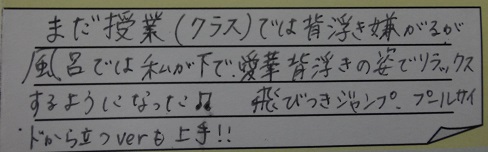 まだ授業(クラス)では背浮き嫌がるが
風呂では私が下で、愛華背浮きの姿でリラックス
するようになった♫ 飛びつきジャンプ、プールサイ
ドから立つverも上手!!